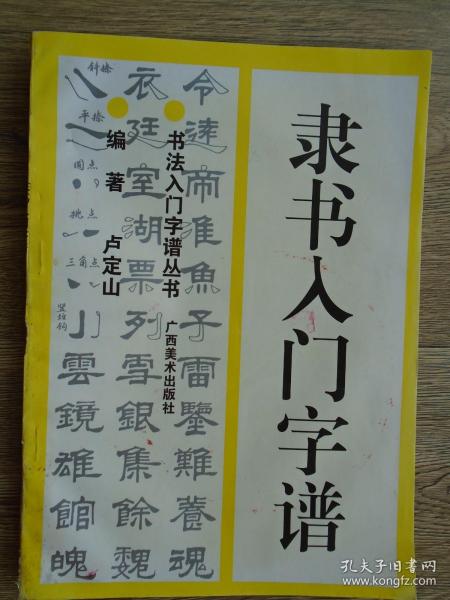 隶书入门字谱
书法入门字谱丛书
广西美术出版社
编著 卢定山
令逮帝淮魚子雷鑒難養魂
衣廷室湖票列雪銀集餘魏
斜捺
平捺
圆点
挑点
三角点
雲鏡雄館魄
孔夫子旧书网
www.kongfz.com